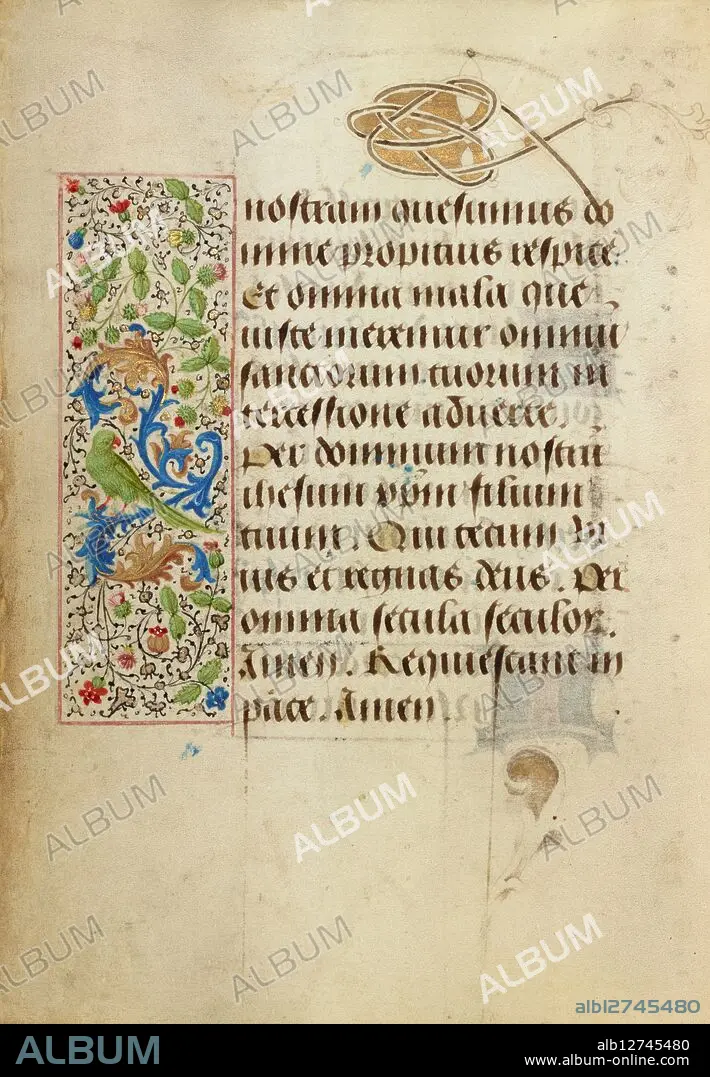 nostram quesumus do
mine propicius respice:
Et omnia mala que
iuste meremur omniu
sanctorum tuorum in
tercessione aduerte.
Per dominum nostru
ihesum xpm filium
tuum. Qui tecum vi
uis et regnas deus. Per
omnia secula seculor.
Amen. Requiescant in
pace. Amen.
ALBUM
alb12745480
ALBUM
alb12745480
www.album-online.com